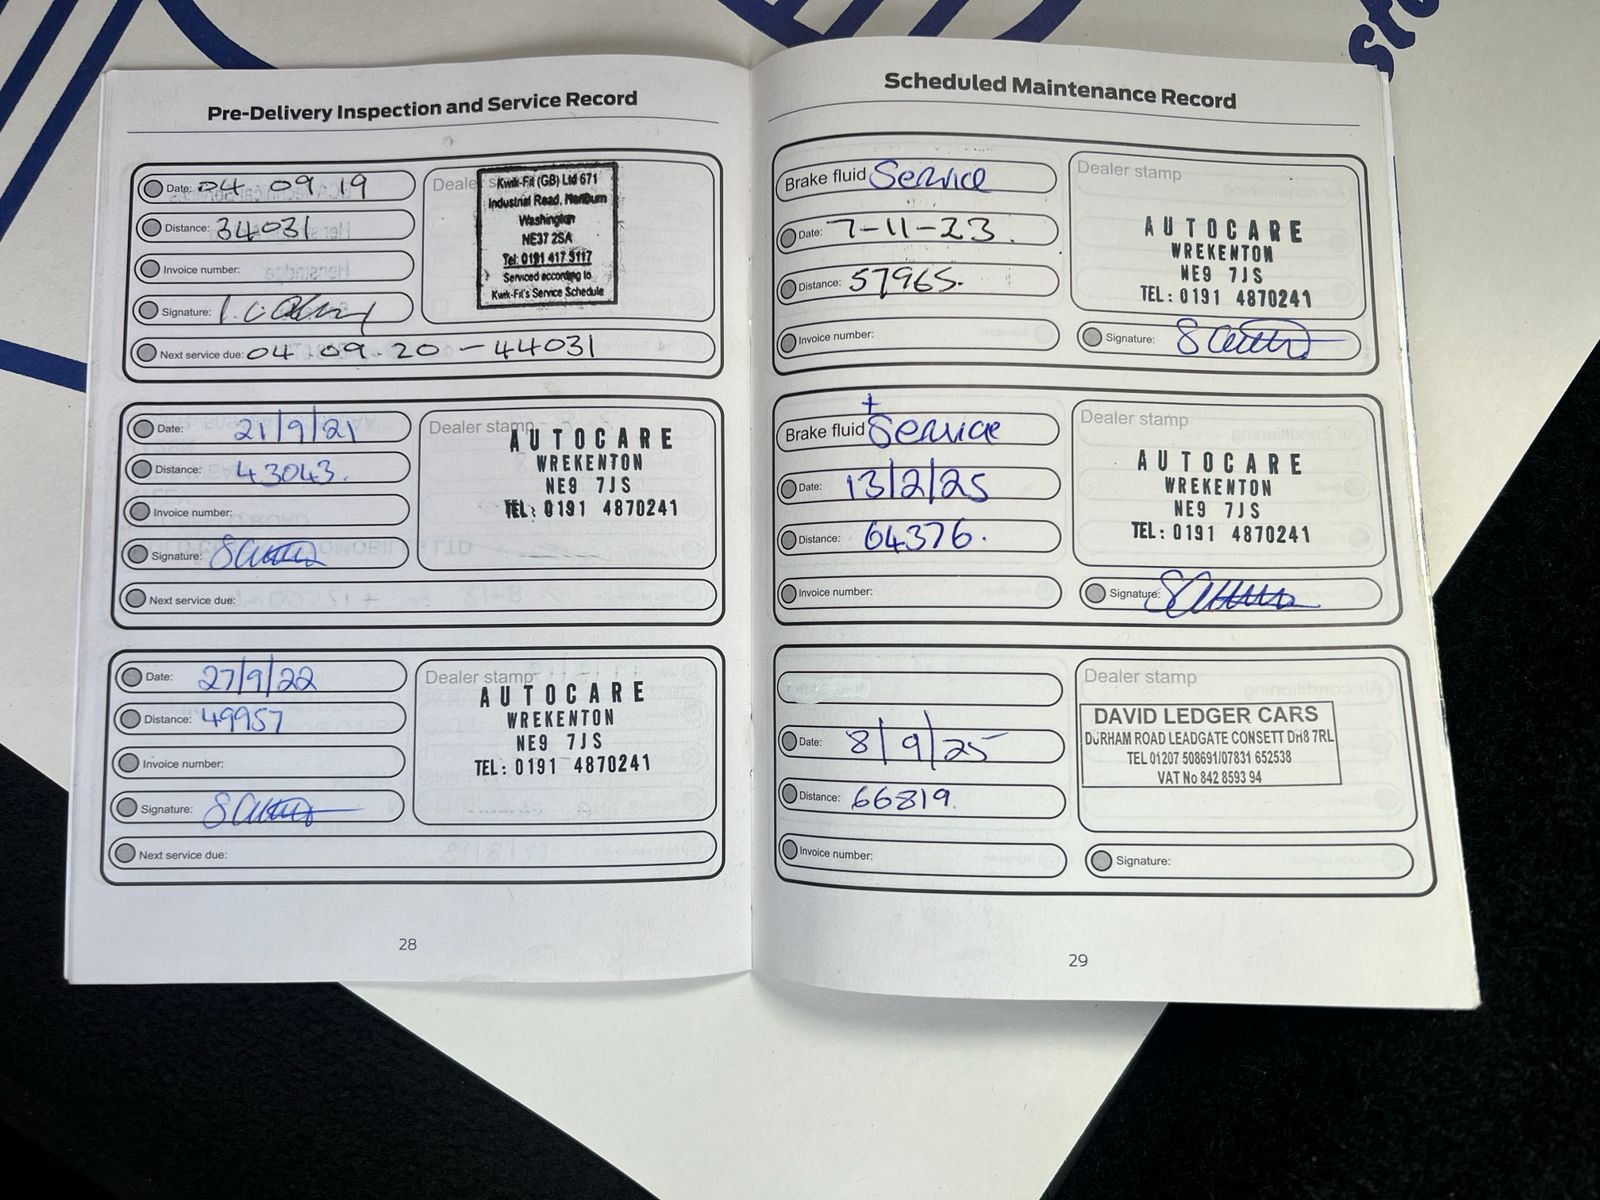 Pre-Delivery Inspection and Service Record
Date: 04 09 19
Distance: 34031
Invoice number:
Signature:
Next service due: 04.09.20 - 44031
Dealer
Kwik-Fit (GB) Ltd 671
Industrial Road, Hertburn
Washington
NE37 2SA
Tel: 0191 417 3117
Serviced according to
Kwik-Fit's Service Schedule
Date: 21/9/21
Distance: 43043.
Invoice number:
Signature:
Next service due:
Dealer stamp
AUTOCARE
WREKENTON
NE9 7JS
TEL: 0191 4870241
Date: 27/9/22
Distance: 49957
Invoice number:
Signature:
Next service due:
Dealer stamp
AUTOCARE
WREKENTON
NE9 7JS
TEL: 0191 4870241
28
Scheduled Maintenance Record
Brake fluid Service
Date: 7-11-23.
Distance: 57965.
Invoice number:
Dealer stamp
AUTOCARE
WREKENTON
NE9 7JS
TEL: 0191 4870241
Signature:
Brake fluid + Service
Date: 13/2/25
Distance: 64376.
Invoice number:
Dealer stamp
AUTOCARE
WREKENTON
NE9 7JS
TEL: 0191 4870241
Signature:
Date: 8/9/25
Distance: 66819.
Invoice number:
Dealer stamp
DAVID LEDGER CARS
DURHAM ROAD LEADGATE CONSETT DH8 7RL
TEL 01207 508691/07831 652538
VAT No 842 8593 94
Signature:
29